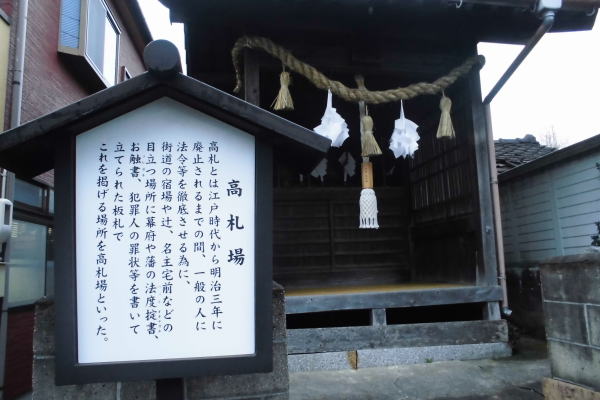 高札場
高札とは江戸時代から明治三年に
廃止されるまでの間、一般の人に
法令等を徹底させる為に、
街道の宿場や辻、名主宅前などの
目立つ場所に幕府や藩の法度掟書、
お触書、犯罪人の罪状等を書いて
立てられた板札で
これを掲げる場所を高札場といった。